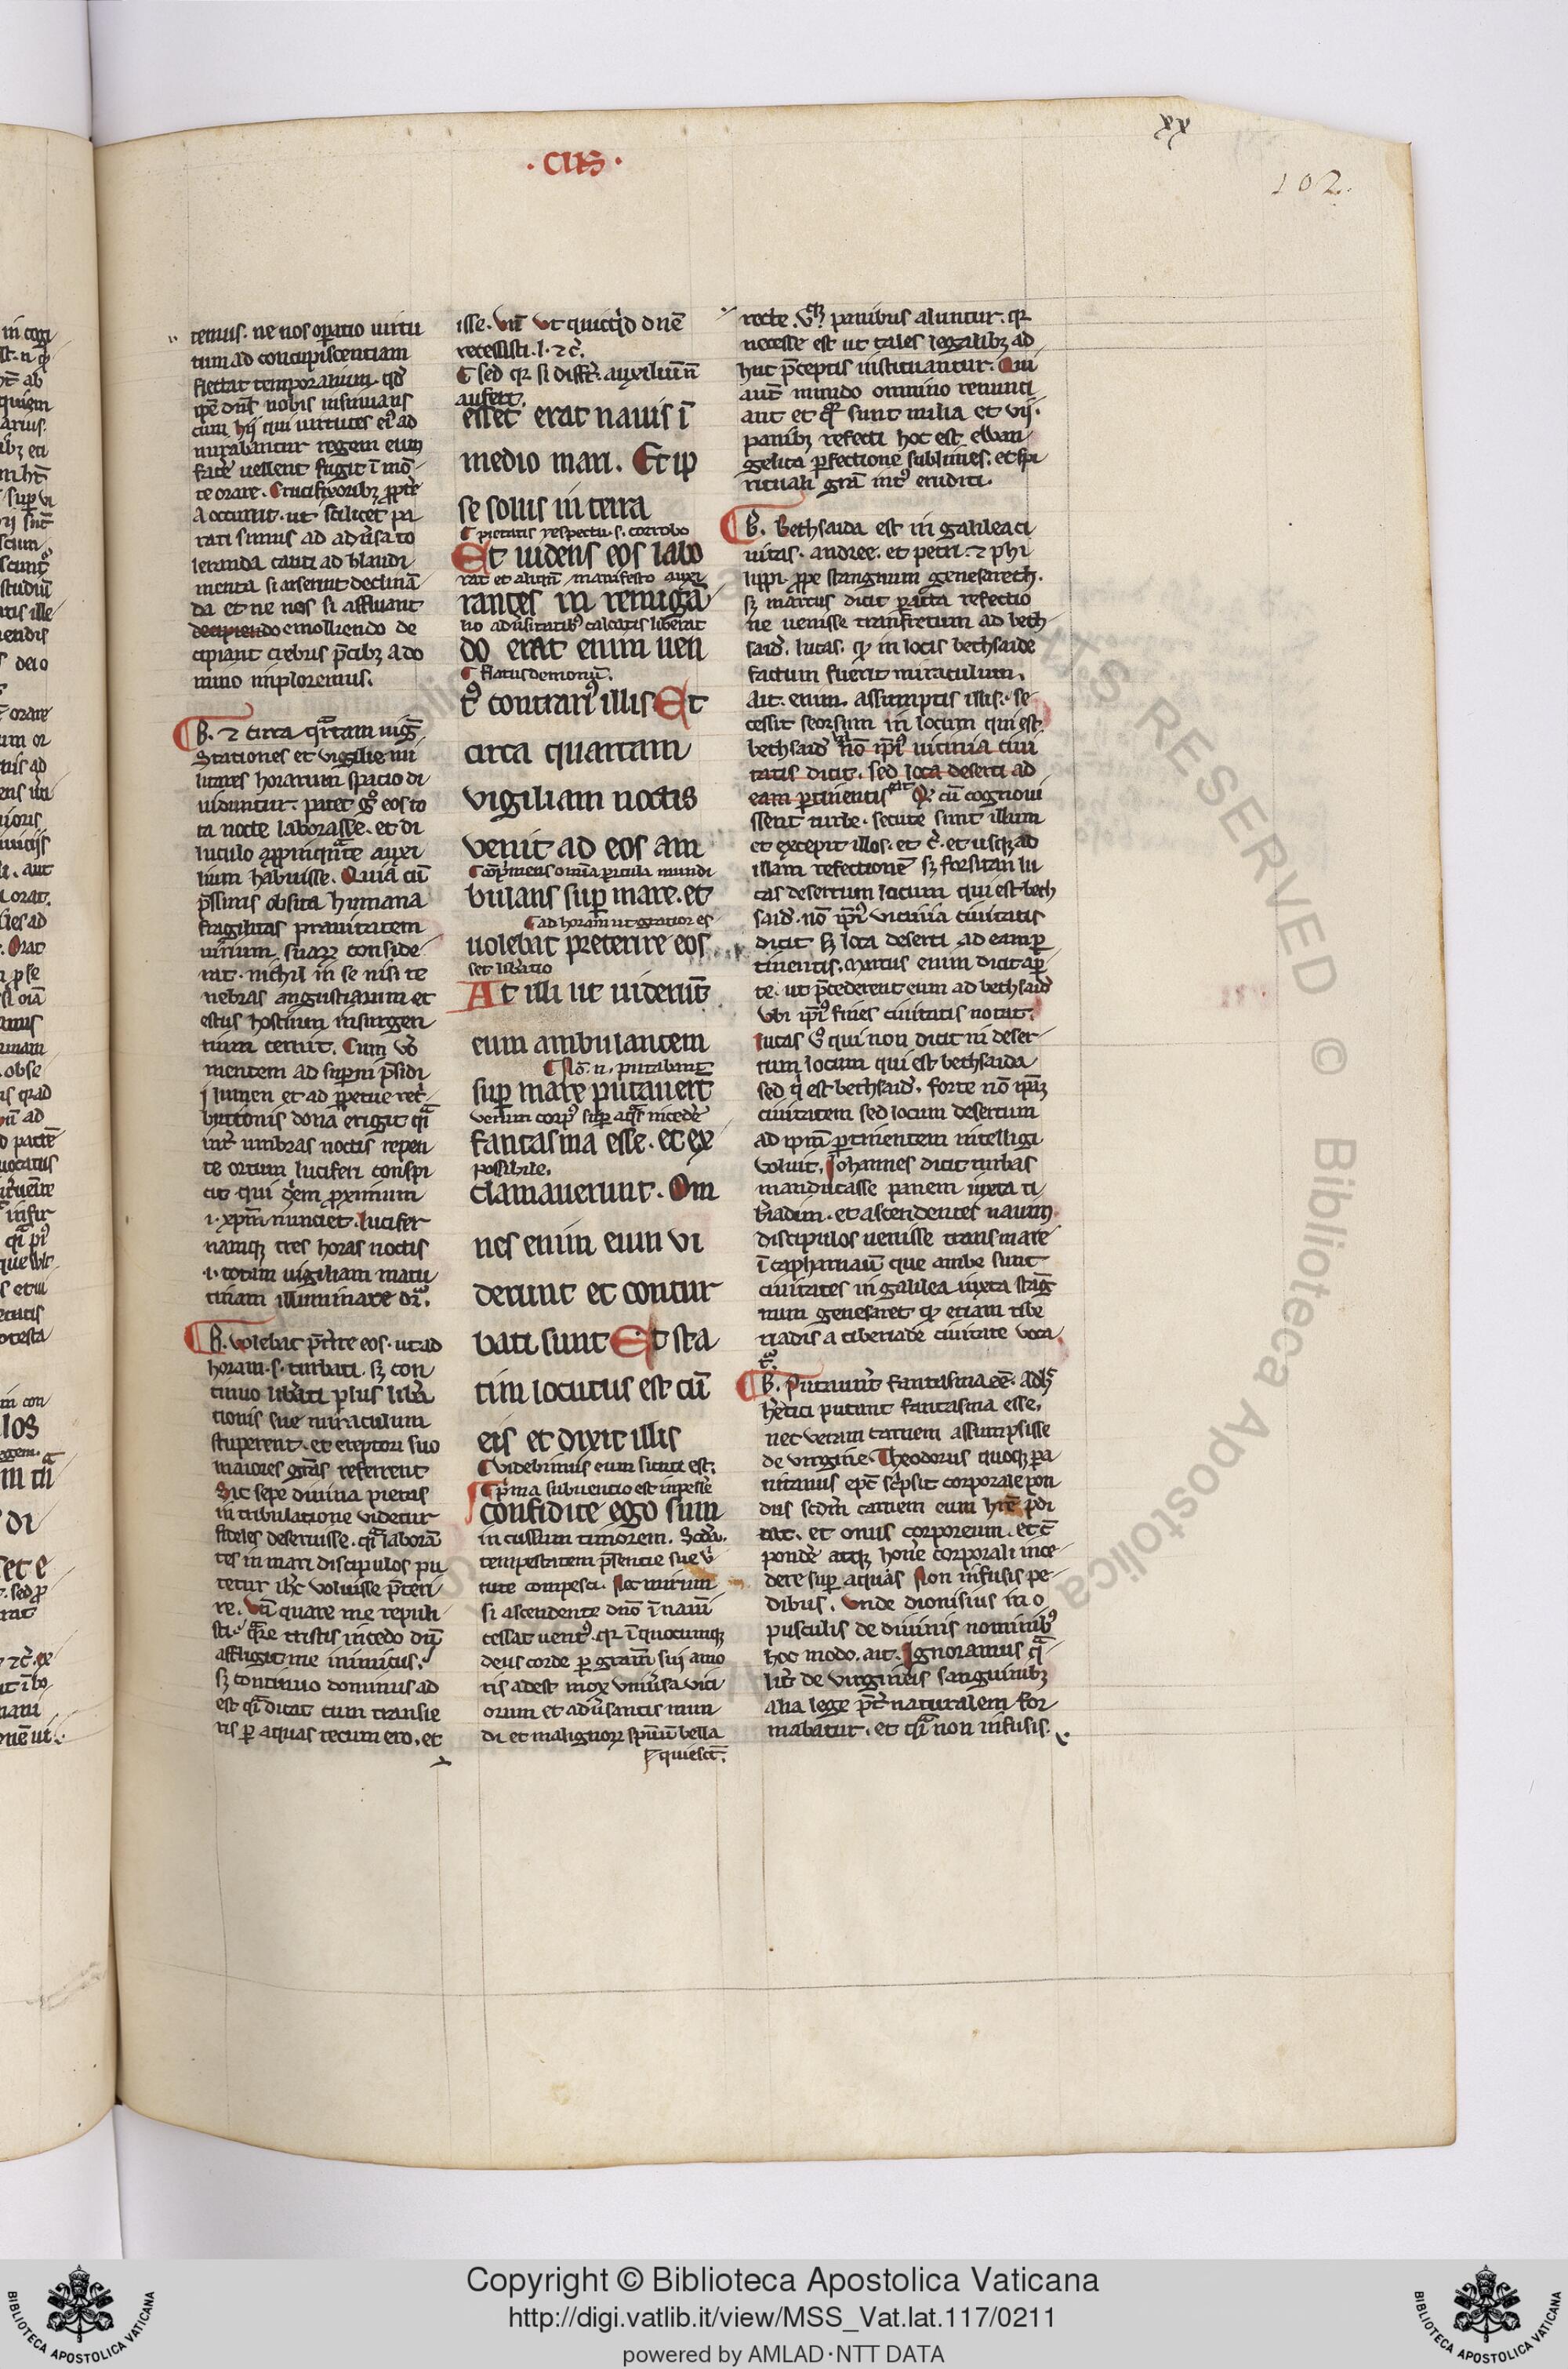 · cus ·
xx
102.
temus. ne nos op̄atio uirtu
tum ad concupiscentiam
flectat temporalium. qd̛
q̛e dn̄s nobis insinuans
cum hij qui uirtutes ei᷒ ad
mirabantur regem eum
face᷒ uellent fugit ī mō-
te orare. Crucifixoribꝫ ꝓpt̛e
a occurrit. ut scilicet pa
rati simus ad adưsa to
leranda cauti ad blandi
menta si arserint declinā
da et ne nos si affluant
decipiendo emolliendo de
cipiant crebris p̄cibꝫ a do
mino imploremus.
B. ⁊ circa qᷓrtam uiḡ
Stationes et vigilie mi
litares horarum spacio di
uiduntur. patet gͦ eos to
ta nocte laborasse. et di
luculo aꝓpinqnᷓte auxi
lium habuisse. Quia cū
p̄ssuris obsita humana
fragilitas prauitatem
uirium suarꝝ conside
rat. nichil in se nisi te
nebras angustiarum et
estus hostium insurgen
tium cernit. Cum vͦ
mentem ad sup̄ni p̄sidi
j lumen et ad ꝑpetue ret̛
butionis dona erigit qͣ
int̛ umbras noctis repen
te ortum luciferi conspi
cit qui diem proximum
.i. xp̄m nunciet. lucifer
namqꝫ tres horas noctis
.i. totam uigiliam matu
tinam illuminare dr̄.
B. volebat p̄t̛ire eos. ut ad
horam .s. turbati. sꝫ con
tinuo lib̛ati plus lib̛a
tionis sue miraculum
stuperent. et ereptori suo
maiores grās referrent
Sic sepe diuina pietas
in tribulatione videtur
fideles deseruisse. qͣ laborā
tes in mari discipulos pu
tetur ih̄c voluisse p̄teri
re. Vn̄ quare me repuli
sti. qͣre tristis incedo dū
affligit me inimicus.
sꝫ continuo dominus ad
est qͥ dicat cum transie
ris ꝑ aquas tecum ero. et
isse. Vn̄ Vt quicq̛d dn̄e
recessisti. l. ⁊ c̄.
sed qr̛ si diff̄t. auxiliū n̄
aufert.
esset erat nauis ī
medio mari. Et ip
se solus in terra
pietatis respectu. s. corrobo
Et uidens eos labo
rat et alitm̄ manifesto auxi
rantes in remigā
lio adưsitatib᷒ calcatis liberat
do erat enim uen
flatus demonū.
t᷒ contrari᷒ illis Et
circa quartam
vigiliam noctis
venit ad eos am
cōp̄mens om̄ia pericula mundi
bulans sup mare. et
ad horam ut gratior es
uolebat preterire eos
set lib̛atio
At illi ut uiderūt
eum ambulantem
Nō. n. putabant
sup mare putauert̄
verum corp᷒ sup aqͣs incede᷒
fantasma esse. et ex
possibile.
clamauerunt. Om
nes enim eum vi
derunt et contur
bati sunt Et sta
tim locutus est cū
eis et dixit illis
videbimus eum sicuti est.
p̄ma subuentio est inpesse᷒
confidite ego sum
in cussum timorem. Scd̄a.
tempestatem p̄sentie sue v̛
tute compesci. Nec mirum
si ascendente dn̄o ī nauī
cessat uent᷒. qr̛ ī quocumqꝫ
deus corde ꝑ gram̄ sui amo
ris adest mox vniưsa vici
orum et adưsantis mun
di et malignorꝝ spūū bella
quiesct̄.
recte. v̛bꝫ panibus aluntur. qr̛
necesse est ut tales legalibꝫ ad
huc p̄ceptis instituantur. Qui
aut̄ mundo omnino renunci
ant et qͣt̛ sunt milia et vij.
panibꝫ refecti hoc est ewan-
gelica ꝑfectione sublimes. et spi
rituali grā int᷒ eruditi.
B. Bethsaida est in galilea ci
uitas. andree. et petri. ⁊ phi
lippi. ꝓpe stangnum genesareth.
sꝫ marcus dicit ꝑacta refectio
ne uenisse transfretum ad beth
said̛. lucas. qd̛ in locis bethsaide
factum fuerit miraculum.
Ait. enim. assumptis illis. se
cessit seorsum in locum qui est
bethsaid̛ nō ip̄i᷒ uicinia ciui
tatis dicit. sed loca deserti ad
eam ꝑtinentis Qͩ cū cognoui
ssent turbe. secute sunt illum
et excepit illos. et c̄. et usqꝫ ad
illam refectionē sꝫ forsitan lu
cas desertum locum qui est beth
said̛. nō ip̄i᷒ vicinia ciuitatis
dicit sꝫ loca deserti ad eam ꝑ
tinentis. Marcus enim dicit aꝑ
te. ut p̄cederent eum ad bethsaid̛
vbi ip̄i᷒ fines ciuitatis notat.
lucas vͦ qui non dicit in deser-
tum locum qui est bethsaida
sed q̛ est bethsaid̛. forte nō ip̄aꝫ
ciuitatem sed locum desertum
ad ip̄m ꝑtinentem intelligi
voluit. Johannes dicit turbas
manducasse panem iuxta ti
b̛iadim. et ascendentes nauim
discipulos uenisse trans mare
ī capharnaū que ambe sunt
ciuitates in galilea iuxta staḡ
num genesaret qd̛ etiam tibe
riadis a tiberiade ciuitate voca
t̛.
B. Putauer̄t fantasma eē. Adhͨ
he᷒tici putant fantasma esse.
nec veram carnem assumpsisse
de virgine. Theodorus quoqꝫ pa
ritanus epc̄ sc̛psit corporale pon
dus scdm̄ carnem eum hr̄e ꝓdi
tat. et onus corporeum. et c̄
ponde᷒ atqꝫ hone᷒ corporali ince
dere sup aquas Non infusis pe-
dibus. Vnde dionisius in o
pusculis de diuinis nominib᷒
hoc modo. ait. Ignoramus qͣ
lit̛ de virgineis sanguinibꝫ
alia lege p̄t̛ naturalem for
mabatur. et qͣ non infusis.
Copyright © Biblioteca Apostolica Vaticana
http://digi.vatlib.it/view/MSS_Vat.lat.117/0211
powered by AMLAD·NTT DATA
BIBLIOTECA APOSTOLICA VATICANA
BIBLIOTECA APOSTOLICA VATICANA